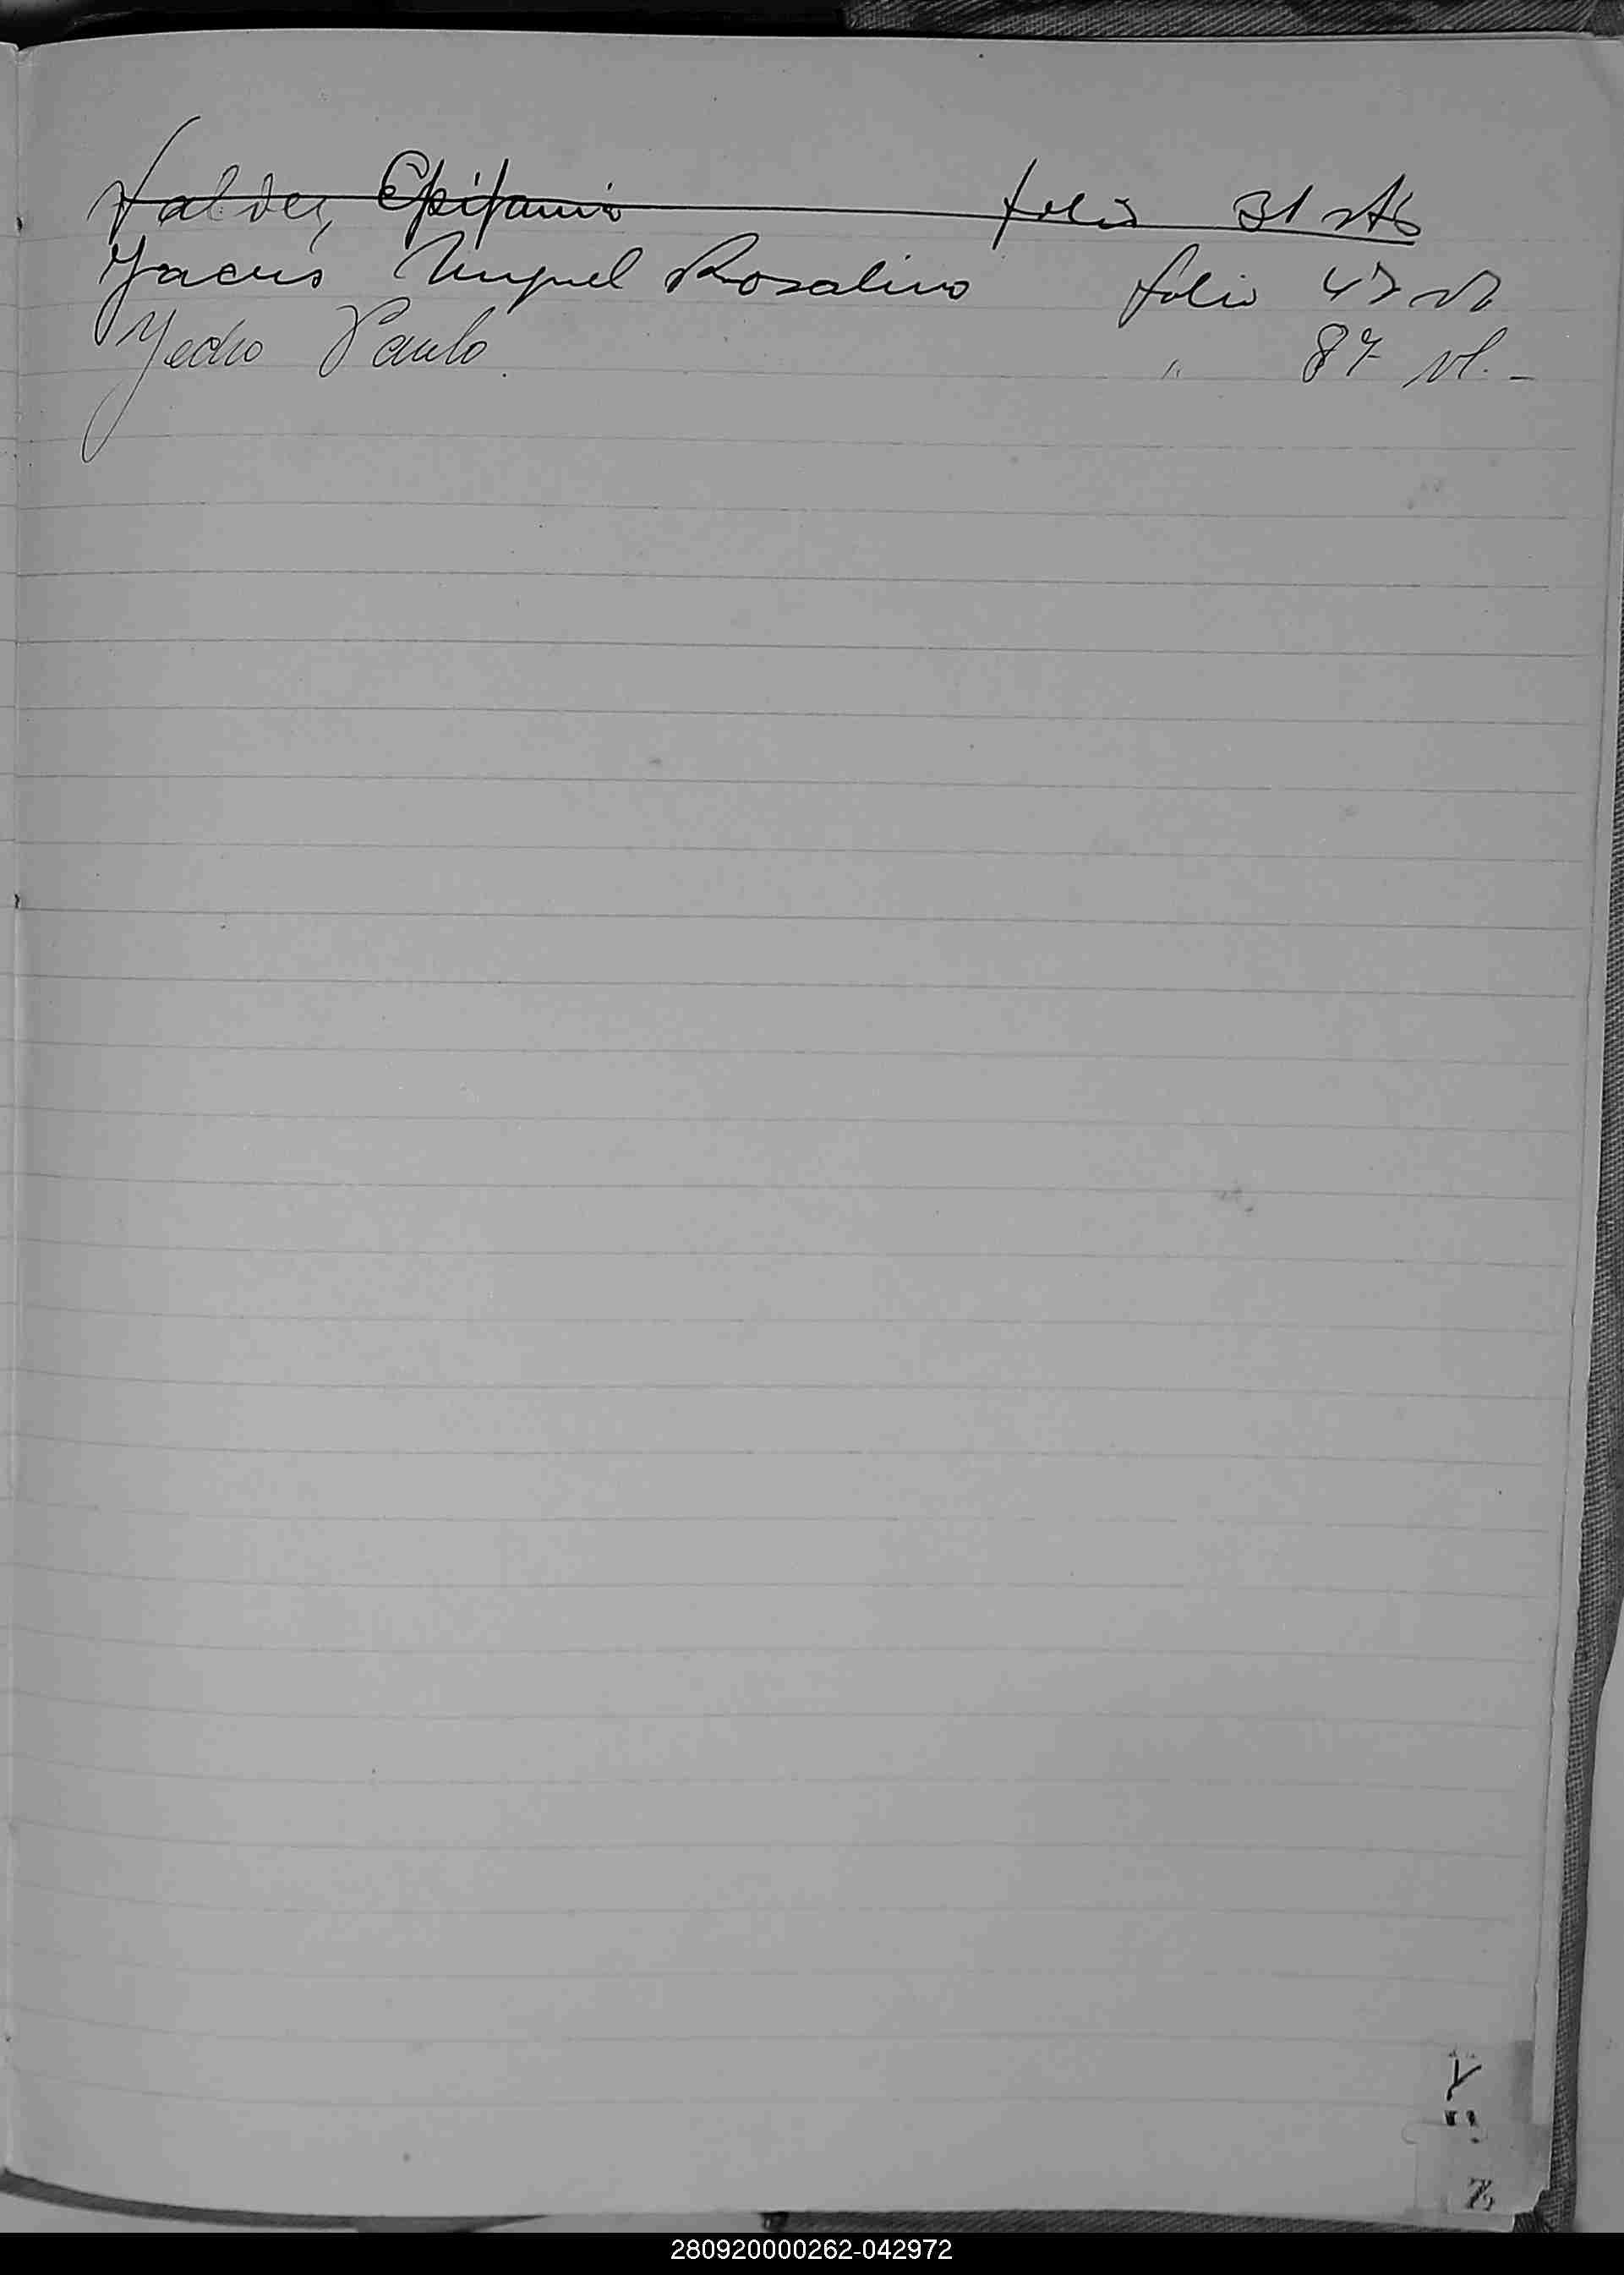 Valdez, Epifanio folio 31 vto
Yacus Miguel Rosalino folio 47 vto
Yedro Paulo. " 87 vt. -
Y
Z
280920000262-042972